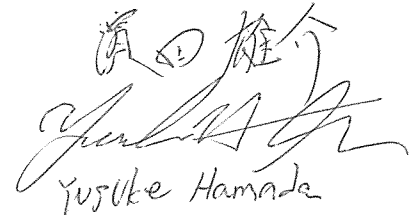 濱田雄介
Yusuke Hamada